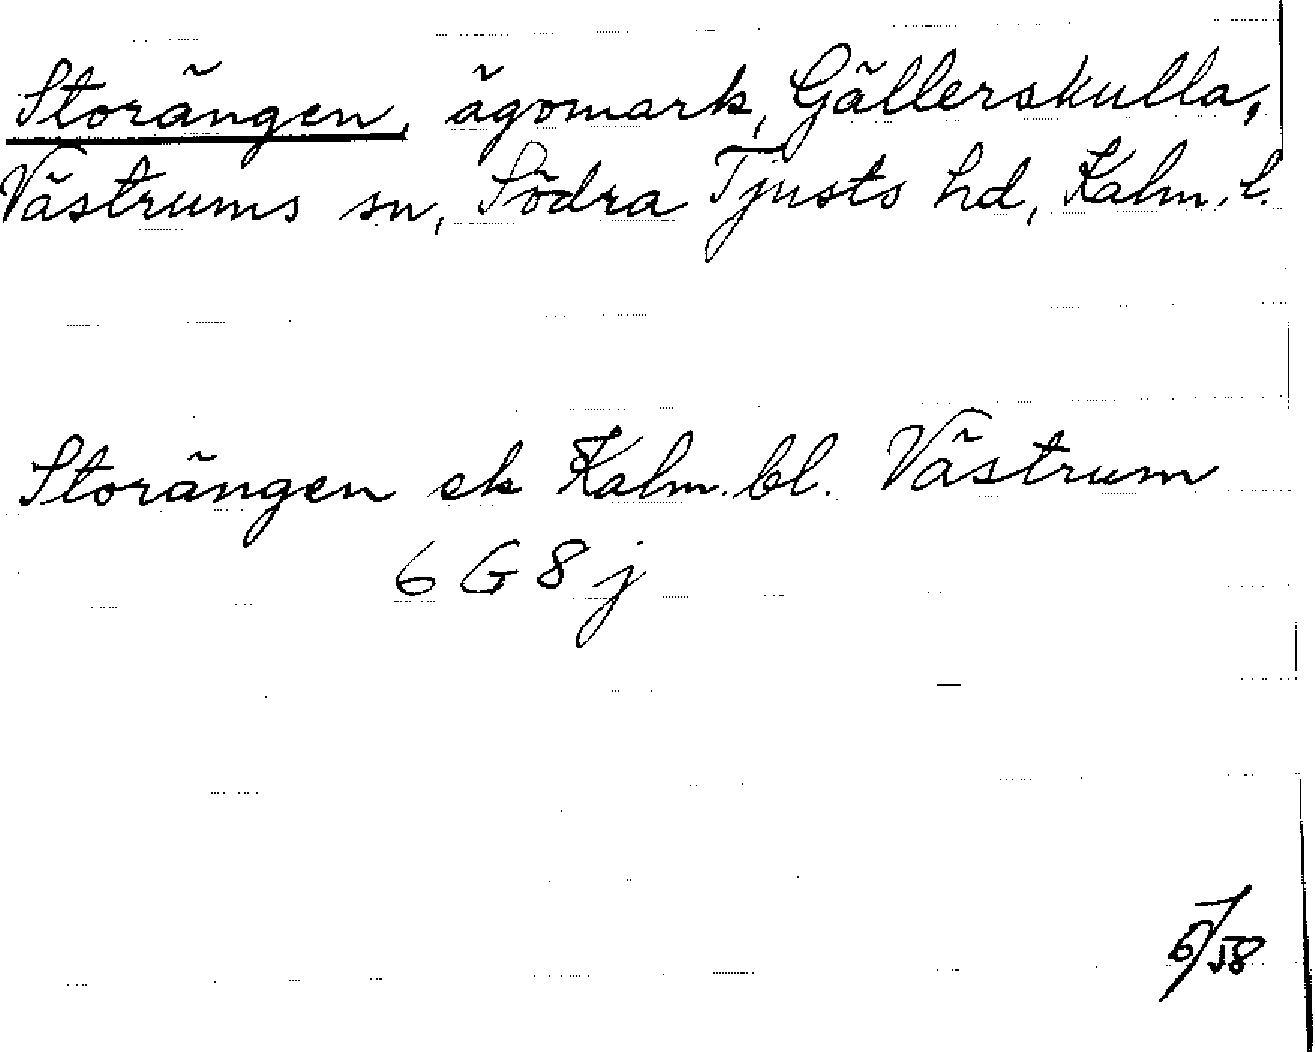 Storängen, ägomark, Gällerskulla,
Västrums sn, Södra Tjusts hd, Kalm. l.
Storängen ek Kalm. bl. Västrum
6 G 8 j